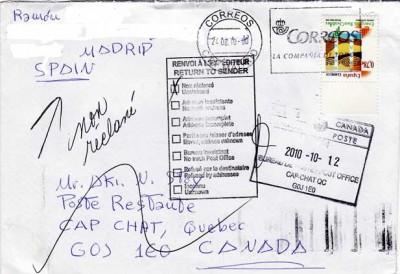 Ramón
MADRID
SPAIN
CORREOS
CORREOS
LA COMPAÑIA
España
RENVOI À L'EXPÉDITEUR
RETURN TO SENDER
Non réclamé
Unclaimed
Adresse inexistante
Adresse incomplète
Address incomplete
Parti sans laisser d'adresse
Moved, address unknown
Bureau inexistant
No such Post Office
Refusé par le destinataire
Refused by addressee
Inconnu
Unknown
non
reclamé
CANADA
POSTE
2010-10-12
POST OFFICE
CAP-CHAT QC
G0J 1E0
Mr.
Poste Restante
CAP CHAT, Quebec
G0J 1E0 CANADA